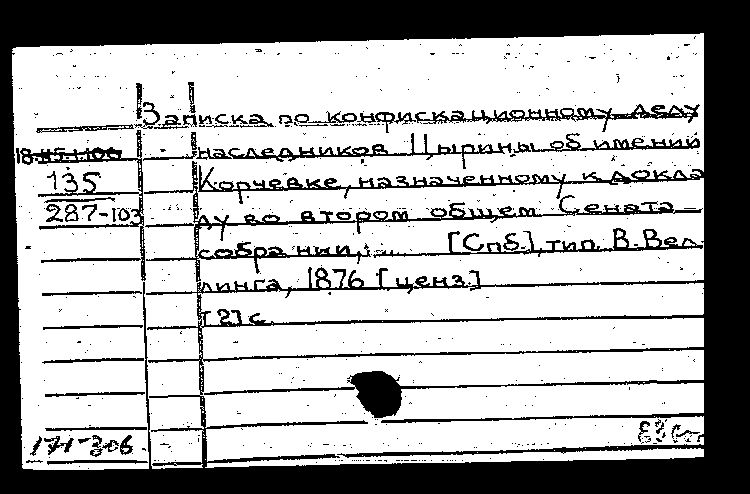 Записка по конфискационному делу
наследников Цырины об имении
135 Корчевке, назначенному к докла
287-103 ду во втором общем Сената
собрании,... [Спб.], тип. В. Вел
линга, 1876 [ценз.]
[2] с.
171-306